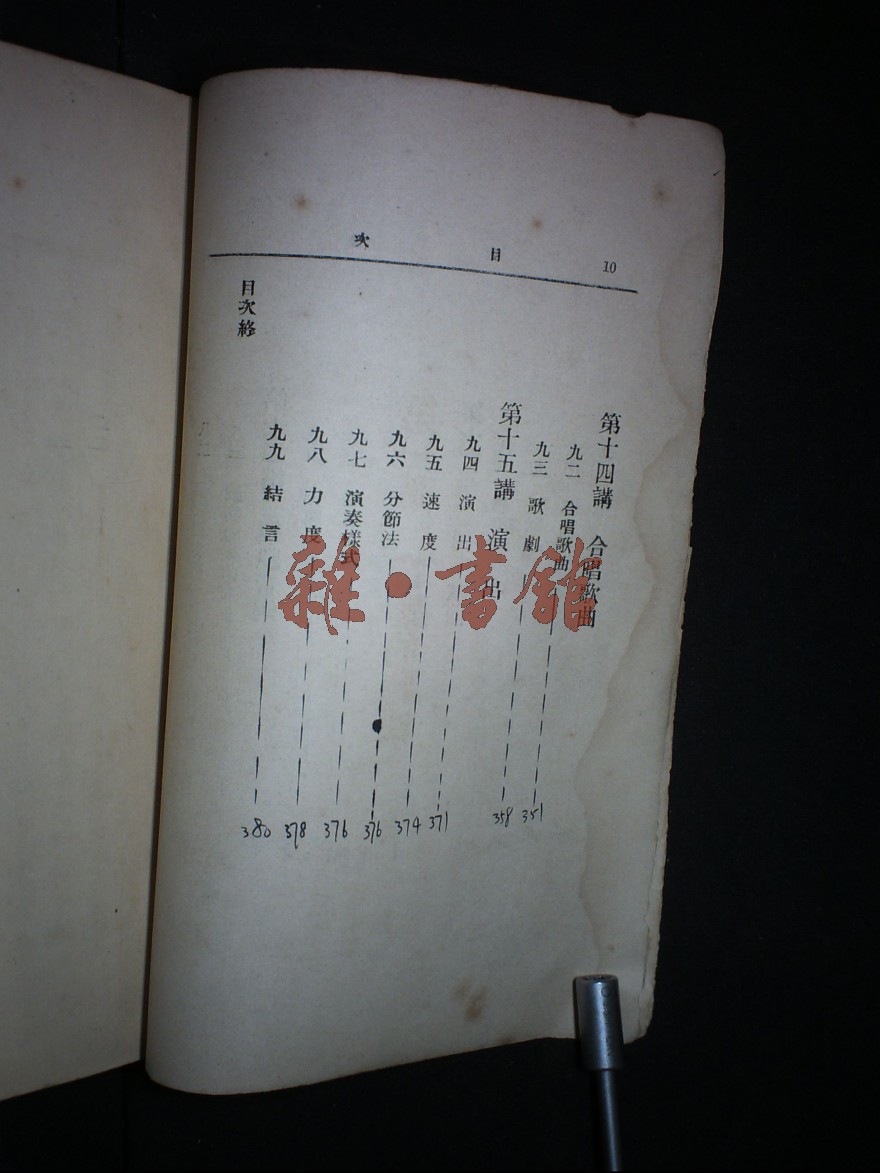 10 目次
第十四講 合唱歌曲
九二 合唱歌曲 351
九三 歌劇 358
第十五講 演出
九四 演出 371
九五 速度 374
九六 分節法 376
九七 演奏樣式 376
九八 力度 378
九九 結言 380
目次終
雜·書館